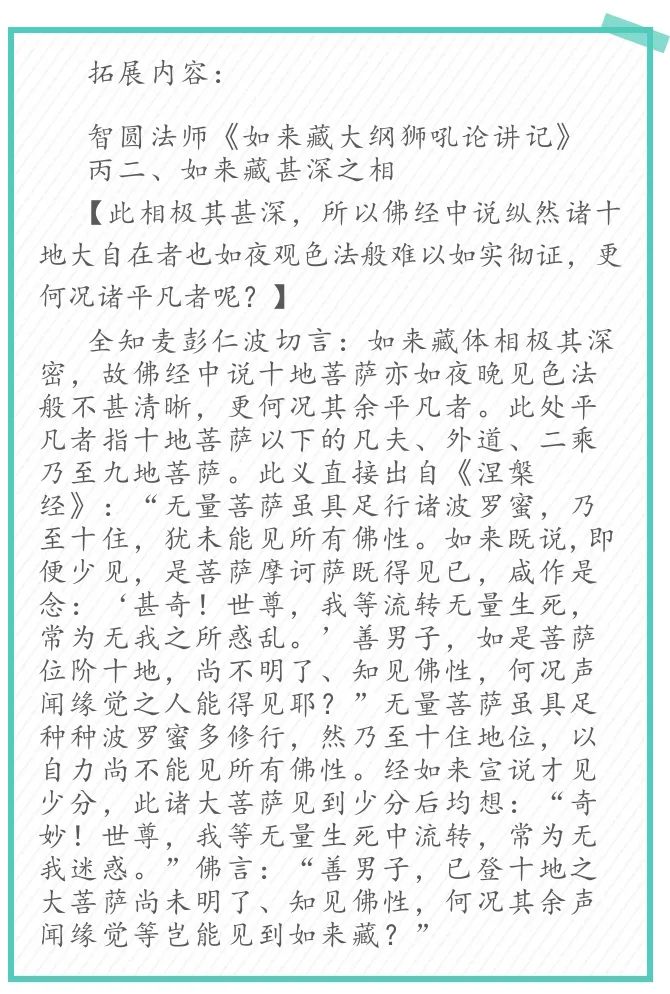 拓展内容：
智圆法师《如来藏大纲狮吼论讲记》
丙二、如来藏甚深之相
【此相极其甚深，所以佛经中说纵然诸十
地大自在者也如夜观色法般难以如实彻证，更
何况诸平凡者呢？】
全知麦彭仁波切言：如来藏体相极其深
密，故佛经中说十地菩萨亦如夜晚见色法
般不甚清晰，更何况其余平凡者。此处平
凡者指十地菩萨以下的凡夫、外道、二乘
乃至九地菩萨。此义直接出自《涅槃
经》：“无量菩萨虽具足行诸波罗蜜，乃
至十住，犹未能见所有佛性。如来既说，即
便少见，是菩萨摩诃萨既得见已，咸作是
念：‘甚奇！世尊，我等流转无量生死，
常为无我之所惑乱。’善男子，如是菩萨
位阶十地，尚不明了、知见佛性，何况声
闻缘觉之人能得见耶？”无量菩萨虽具足
种种波罗蜜多修行，然乃至十住地位，以
自力尚不能见所有佛性。经如来宣说才见
少分，此诸大菩萨见到少分后均想：“奇
妙！世尊，我等无量生死中流转，常为无
我迷惑。”佛言：“善男子，已登十地之
大菩萨尚未明了、知见佛性，何况其余声
闻缘觉等岂能见到如来藏？”